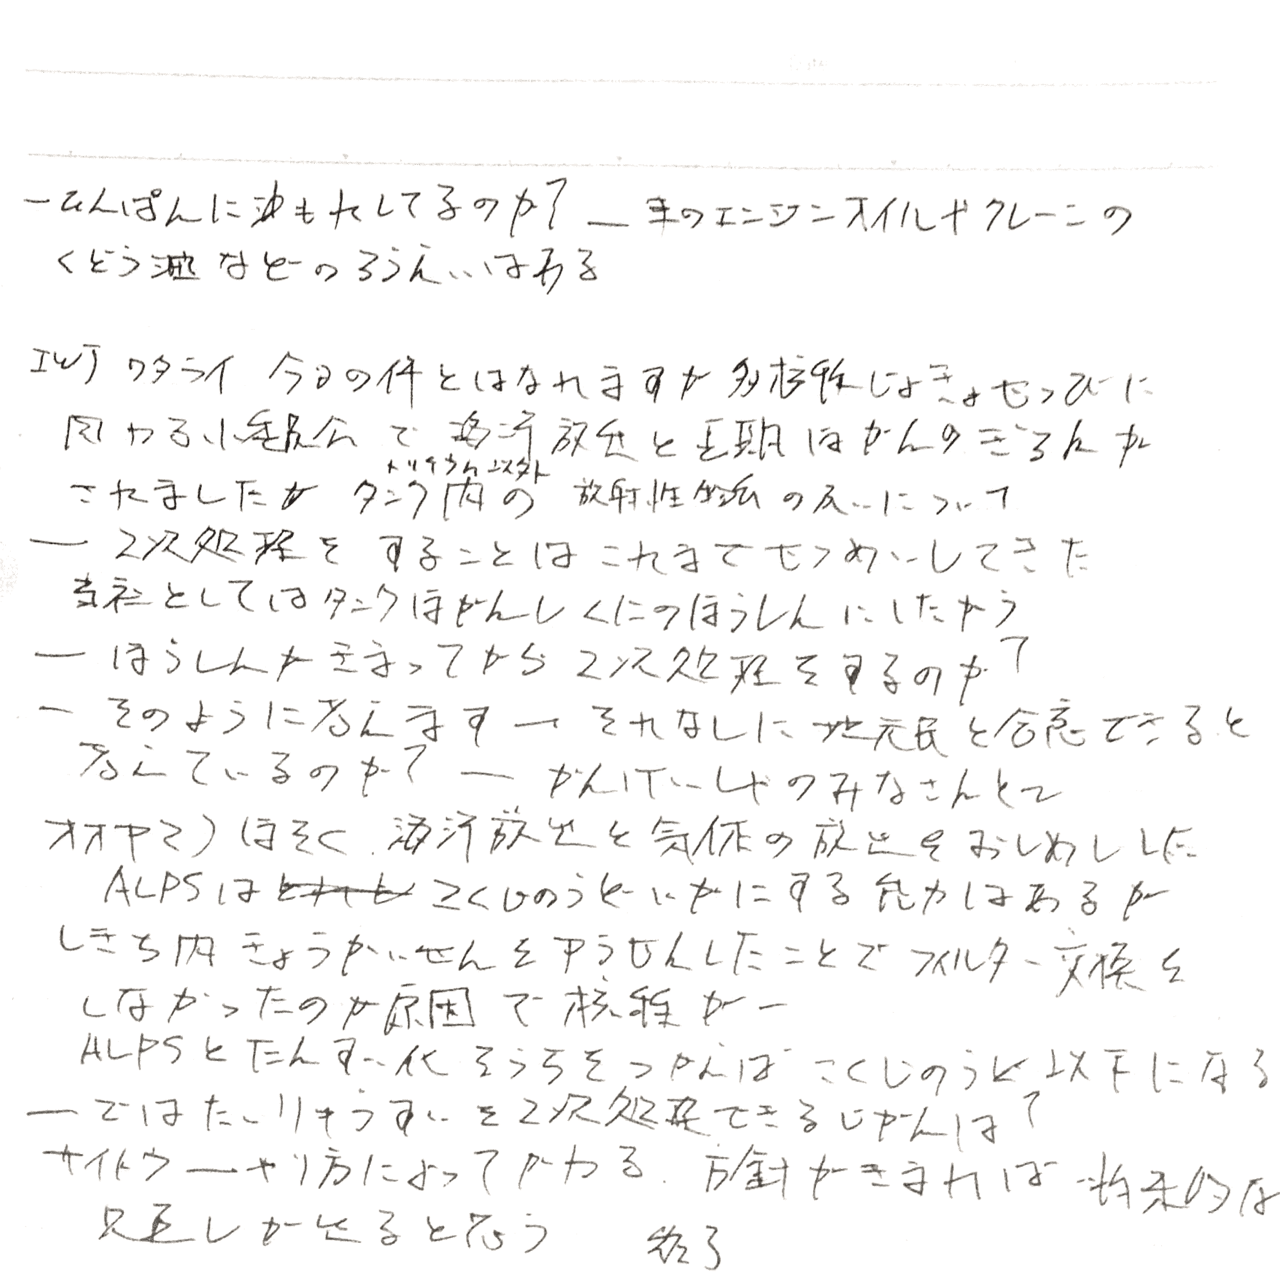 ーひんぱんに油もれしてるのか？ ― 車のエンジンオイルやクレーンの
くどう油などのろうえいはある
IWJ ワタライ 今日の件とはなれますが 多核種じょきょせつびに
関わる小委員会で 海洋放出と長期ほかんのぎろんが
トリチウム以外
されましたが タンク内の 放射性物質のあつかいについて
― 2次処理をすることはこれまでせつめいしてきた
当社としてはタンクほかんし くにのほうしんにしたがう
― ほうしんがきまってから 2次処理をするのか？
― そのように考えます ― それなしに 地元民と合意できると
考えているのか？ ― かんけいしゃのみなさんとで
オオヤマ）ほそく 海洋放出と気体の放出をおしめしした
ALPSは こくじのうどいかにする能力はあるが
しきち内きょうかいせんをゆうせんしたことで フィルター交換を
しなかったのが原因で 核種がー
ALPSとたんすい化そうちをつかえば こくじのうど以下になる
― ではたいりゅうすいを2次処理できるじかんは？
サイトウ ― やり方によってかわる 方針がきまれば 将来的な
見直しがせると思う 終了